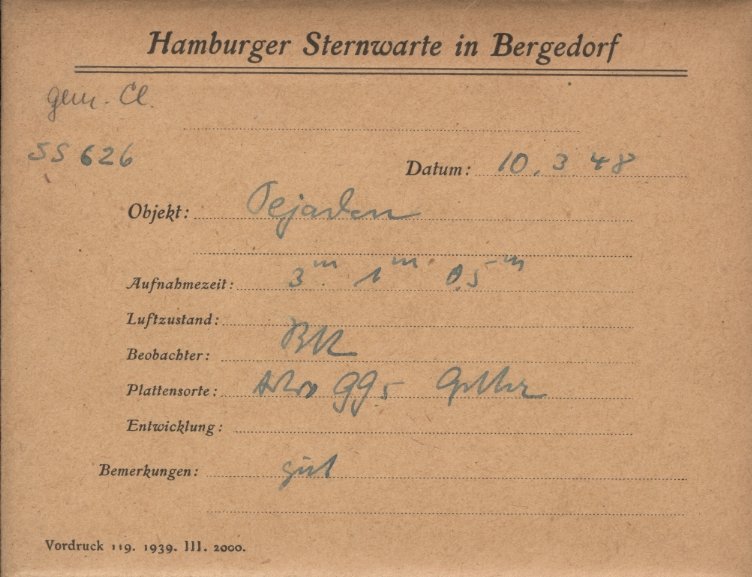 Hamburger Sternwarte in Bergedorf
gem. Cl.
SS 626
Datum: 10. 3 48
Objekt: Plejaden
Aufnahmezeit: 3 m. 1 m. 0,5 m
Luftzustand:
Beobachter:
Plattensorte: Astro 995
Entwicklung:
Bemerkungen: gut
Vordruck 119. 1939. III. 2000.